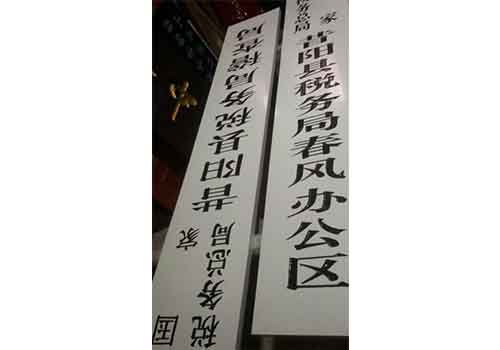 国家
税务总局
昔阳县税务局稽查局
家
税务总局
昔阳县税务局春风办公区